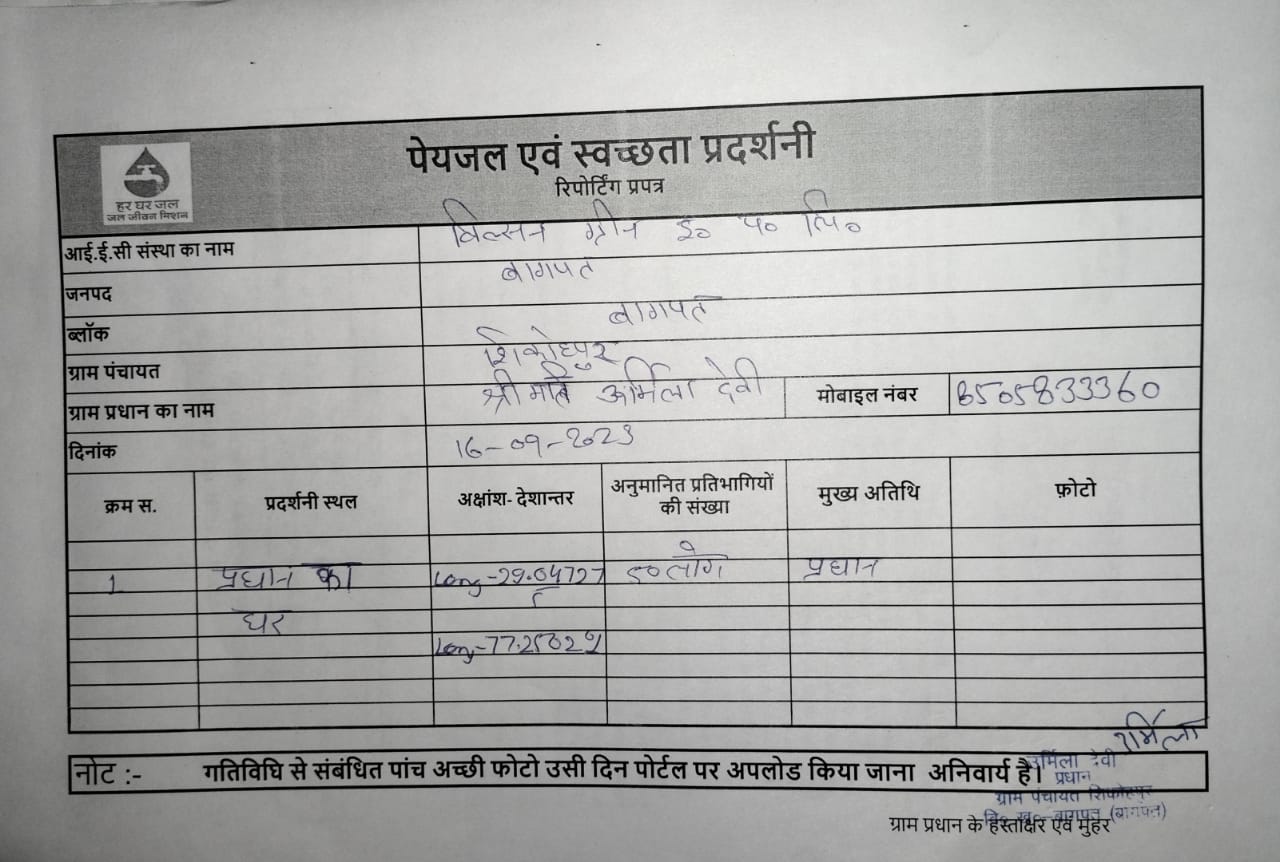 पेयजल एवं स्वच्छता प्रदर्शनी
रिपोर्टिंग प्रपत्र
हर घर जल
जल जीवन मिशन
आई.ई.सी संस्था का नाम विल्सन ग्रीन इ० प० लि०
जनपद बागपत
ब्लॉक बागपत
ग्राम पंचायत शिकोहपुर
ग्राम प्रधान का नाम श्रीमति उर्मिला देवी मोबाइल नंबर 8505833360
दिनांक 16-09-2023
क्रम स. प्रदर्शनी स्थल अक्षांश- देशान्तर अनुमानित प्रतिभागियों की संख्या मुख्य अतिथि फ़ोटो
1 प्रधान का Long-29.04727 ५० लोग प्रधान
घर
Long-77.25029
उर्मिला
नोट :- गतिविधि से संबंधित पांच अच्छी फोटो उसी दिन पोर्टल पर अपलोड किया जाना अनिवार्य है।
उर्मिला देवी
प्रधान
ग्राम पंचायत शिकोहपुर
वि० ख०-बागपत (बागपत)
ग्राम प्रधान के हस्ताक्षर एवं मुहर